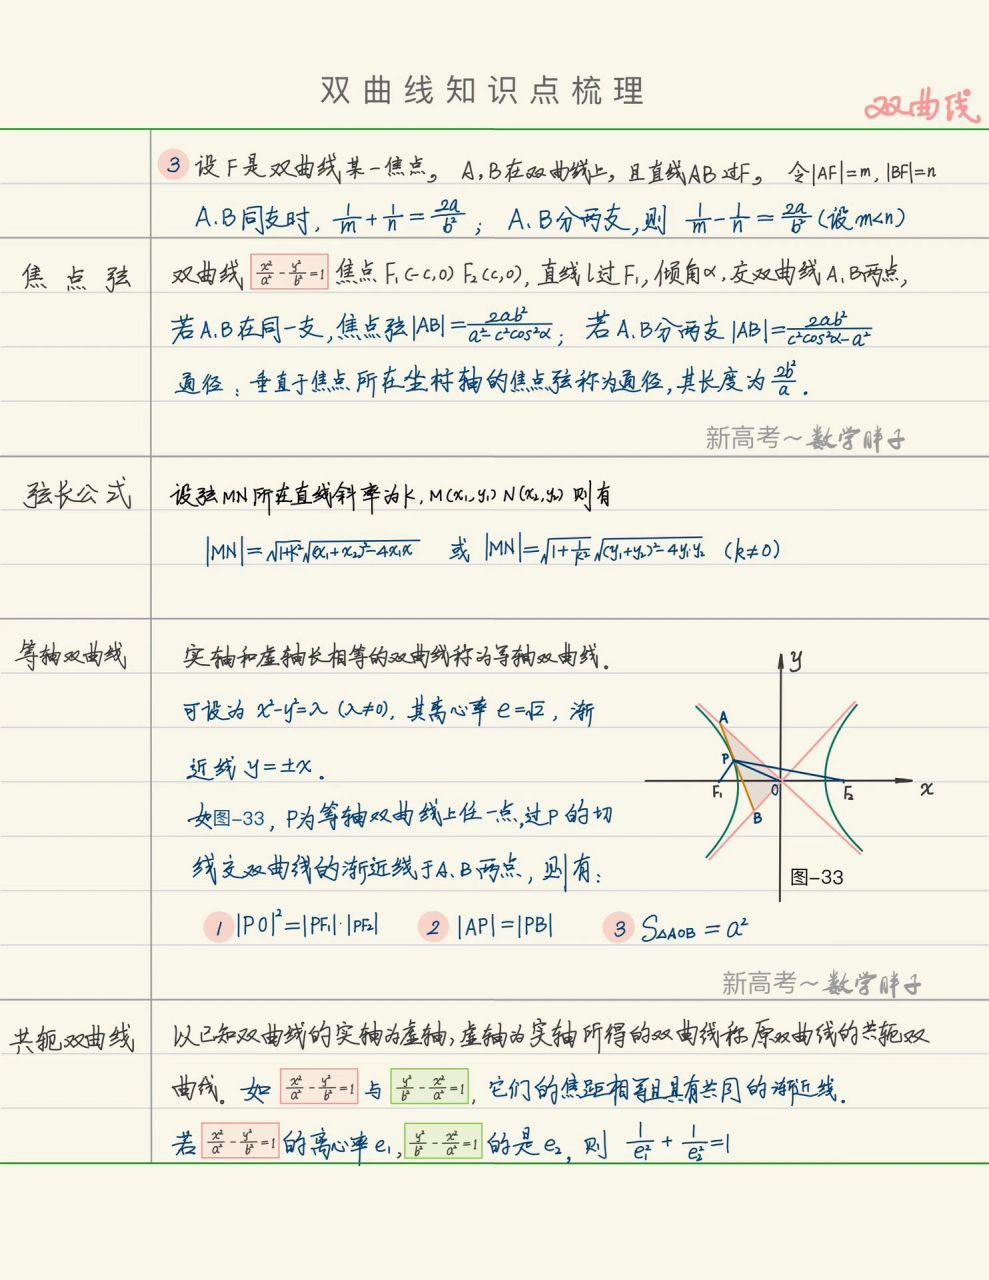 双曲线知识点梳理
双曲线
③ 设F是双曲线某一焦点。A,B在双曲线上,且直线AB过F。 令|AF|=m,|BF|=n
A.B同支时, 1/m + 1/n = 2a/b² ; A.B分两支,则 1/m - 1/n = 2a/b² (设m<n)
焦点弦
双曲线 x²/a² - y²/b² = 1 焦点F₁(-c,0) F₂(c,0), 直线l过F₁,倾角α,交双曲线A.B两点,
若A.B在同一支,焦点弦|AB| = 2ab²/(a²-c²cos²α) ; 若A.B分两支|AB| = 2ab²/(c²cos²α-a²)
通径:垂直于焦点所在坐标轴的焦点弦称为通径,其长度为 2b²/a .
新高考~数学胖子
弦长公式
设弦MN所在直线斜率为k, M(x₁,y₁) N(x₂,y₂) 则有
|MN| = √(1+k²) √((x₁+x₂)²-4x₁x) 或 |MN| = √(1+1/k²) √((y₁+y₂)²-4y₁y₂) (k≠0)
等轴双曲线
实轴和虚轴长相等的双曲线称为等轴双曲线.
可设为 x²-y²=λ (λ≠0), 其离心率 e=√2, 渐
近线 y=±x.
如图-33, P为等轴双曲线上任一点,过P的切
线交双曲线的渐近线于A.B两点, 则有:
① |PO|²=|PF₁|·|PF₂| ② |AP|=|PB| ③ S△AOB = a²
y
A
P
F₁
O
F₂
x
B
图-33
新高考~数学胖子
共轭双曲线
以已知双曲线的实轴为虚轴,虚轴为实轴所得的双曲线称原双曲线的共轭双
曲线。如 x²/a² - y²/b² = 1 与 y²/b² - x²/a² = 1, 它们的焦距相等且具有共同的渐近线.
若 x²/a² - y²/b² = 1 的离心率e₁, y²/b² - x²/a² = 1 的是e₂, 则 1/e₁² + 1/e₂² = 1